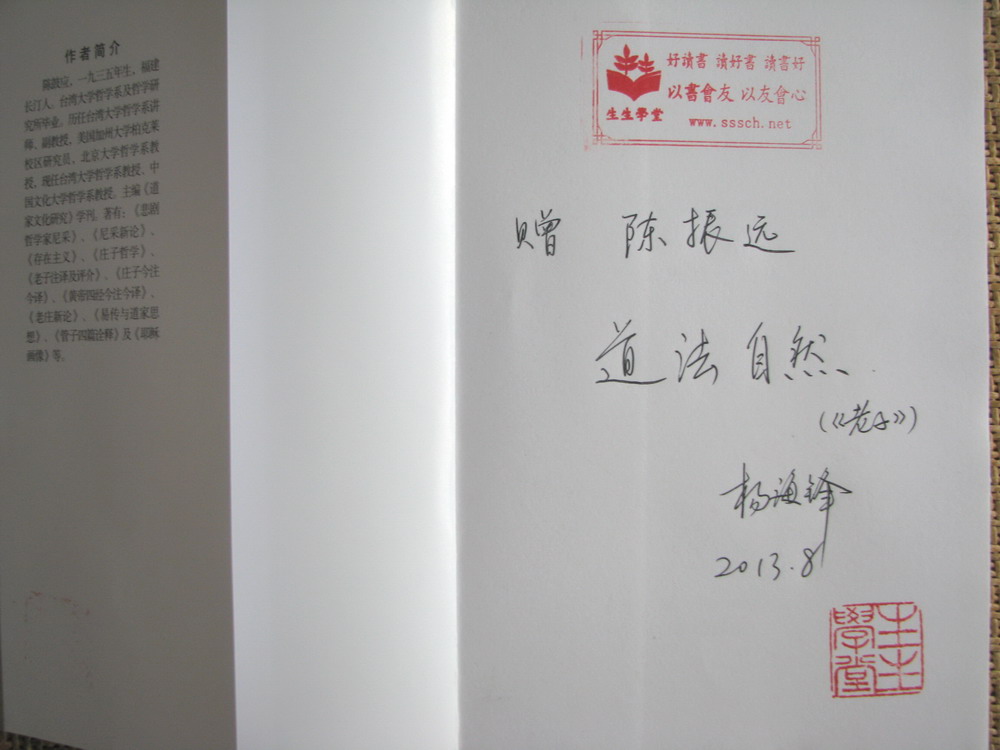 作者简介
陈鼓应，一九三五年生，福建
长汀人。台湾大学哲学系及哲学研
究所毕业。历任台湾大学哲学系讲
师、副教授，美国加州大学柏克莱
校区研究员，北京大学哲学系教
授，现任台湾大学哲学系教授、中
国文化大学哲学系教授。主编《道
家文化研究》学刊。著有：《悲剧
哲学家尼采》、《尼采新论》、
《存在主义》、《庄子哲学》、
《老子注译及评介》、《庄子今注
今译》、《黄帝四经今注今译》、
《老庄新论》、《易传与道家思
想》、《管子四篇诠释》及《耶稣
画像》等。
好讀書 讀好書 讀書好
以書會友 以友會心
生生學堂
www.sssch.net
赠 陈振远
道法自然
(《老子》)
杨海锋
2013.8
生生
學堂